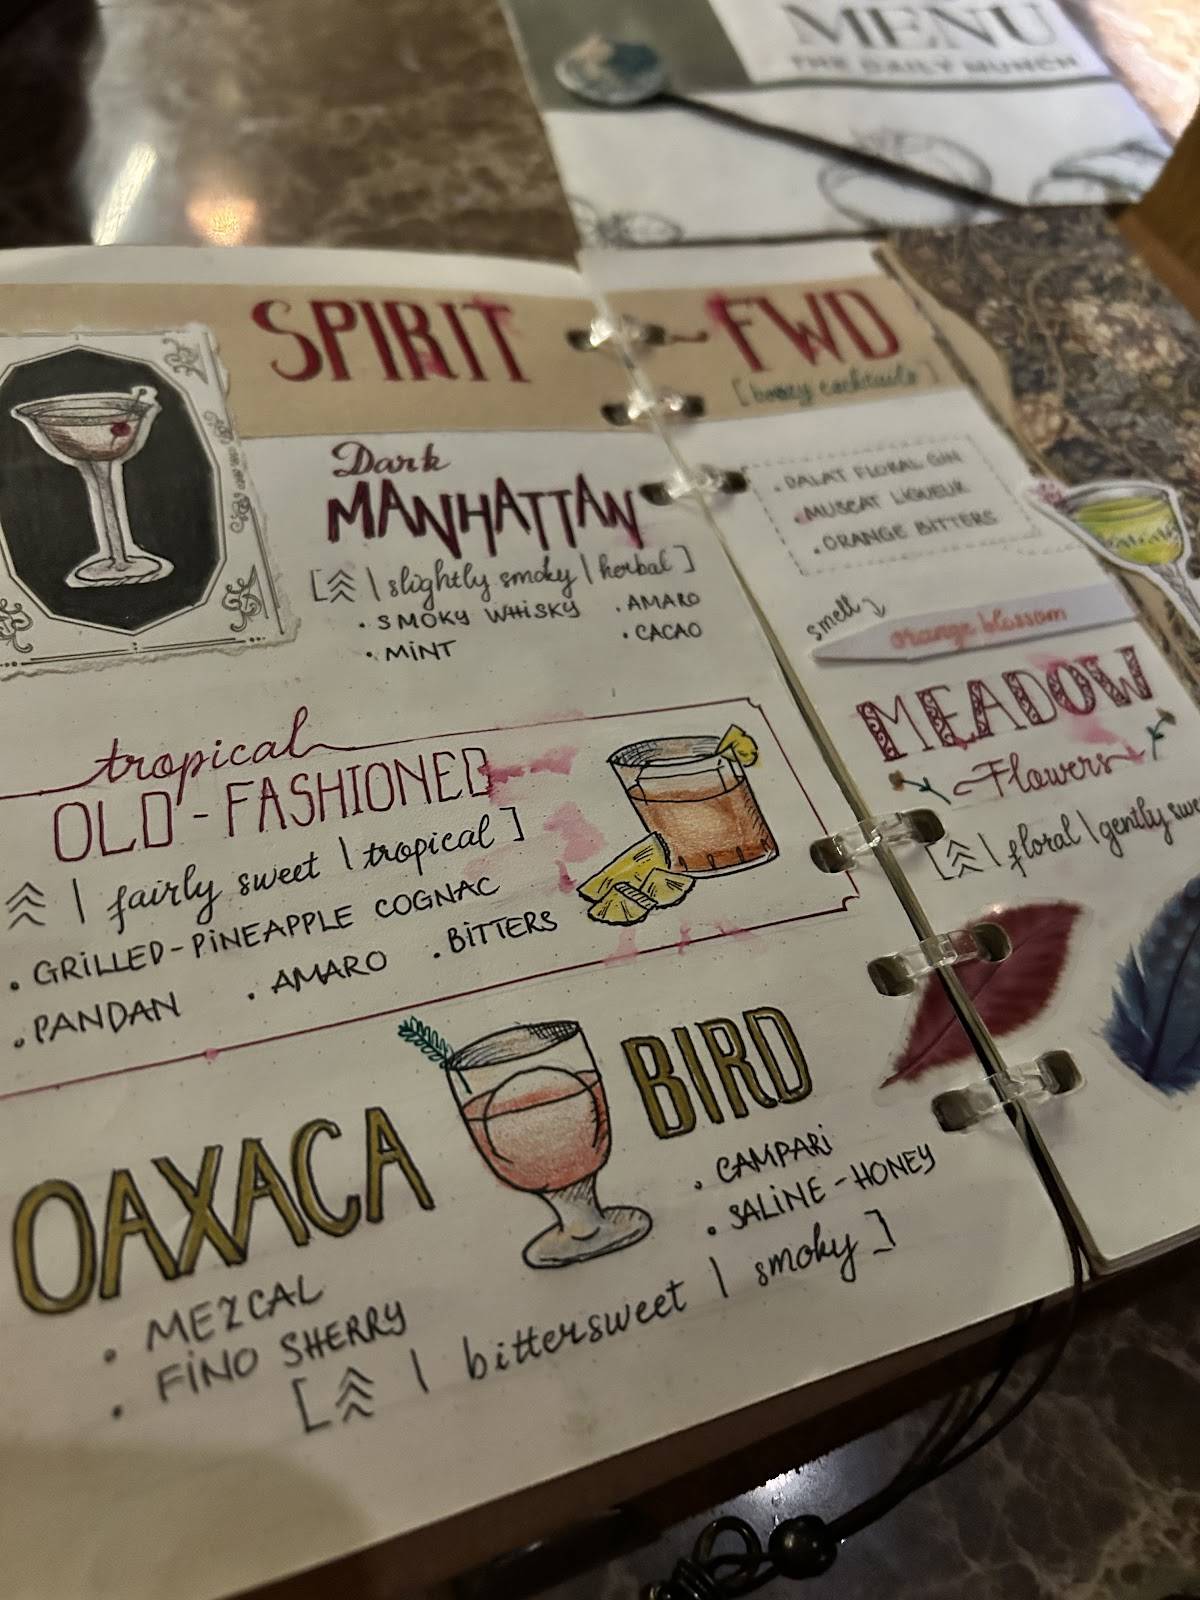 MENU
THE DAILY MUNCH
SPIRIT FWD
[boozy cocktails]
Dark
MANHATTAN
[ | slightly smoky | herbal ]
• SMOKY WHISKY • AMARO
• MINT • CACAO
tropical
OLD-FASHIONED
| fairly sweet | tropical ]
• GRILLED-PINEAPPLE COGNAC
• PANDAN • AMARO • BITTERS
OAXACA BIRD
• MEZCAL
• FINO SHERRY
• CAMPARI
• SALINE-HONEY
[ | bittersweet | smoky ]
• DALAT FLORAL GIN
• MUSCAT LIQUEUR
• ORANGE BITTERS
smell
orange blossom
MEADOW
Flowers
[ | floral | gently